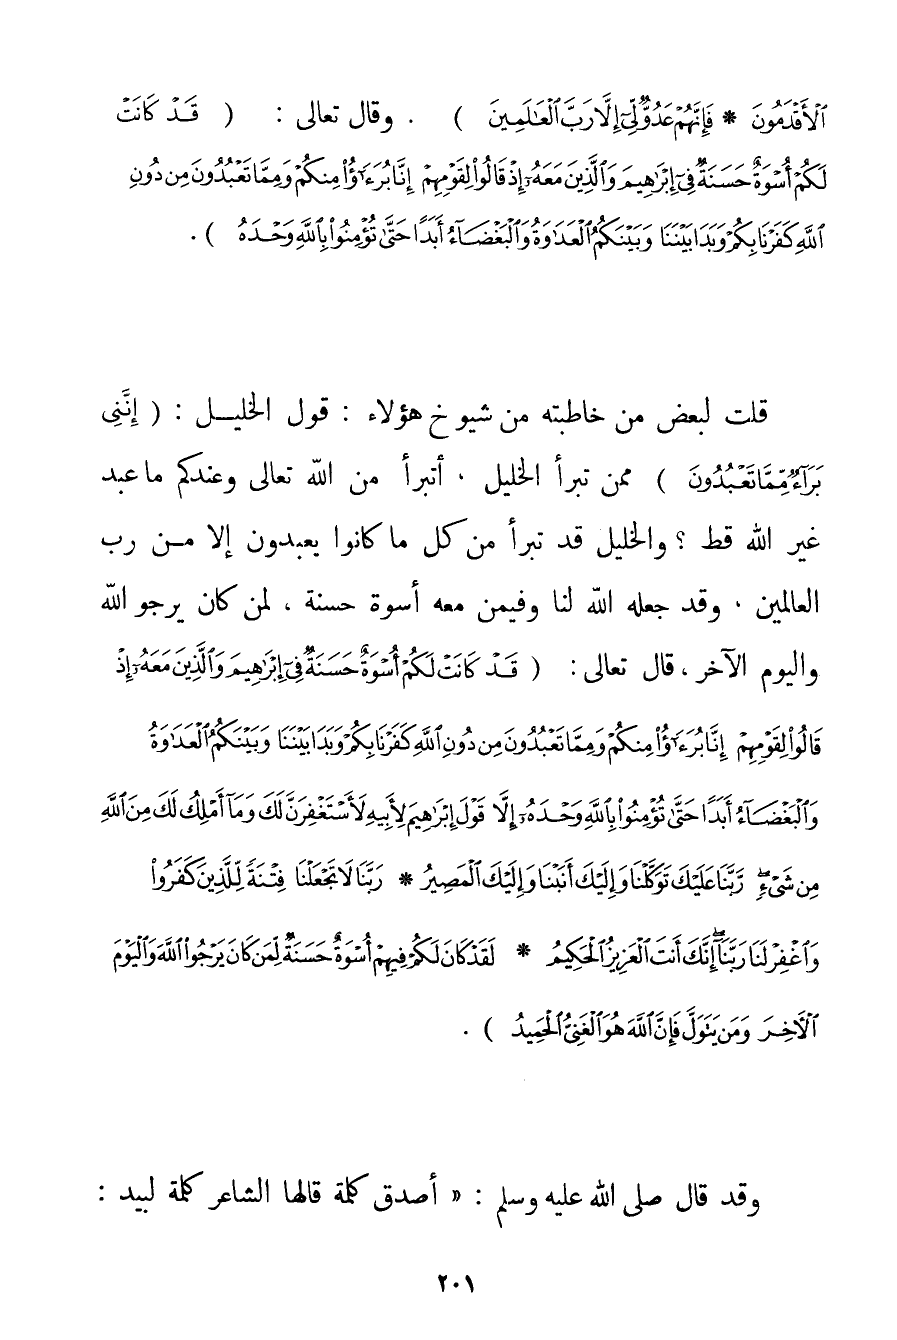 ٱلۡأَقۡدَمُونَ * فَإِنَّهُمۡ عَدُوٌّ لِّيٓ إِلَّا رَبَّ ٱلۡعَٰلَمِينَ ) . وقال تعالى : ( قَدۡ كَانَتۡ
لَكُمۡ أُسۡوَةٌ حَسَنَةٌ فِيٓ إِبۡرَٰهِيمَ وَٱلَّذِينَ مَعَهُۥٓ إِذۡ قَالُواْ لِقَوۡمِهِمۡ إِنَّا بُرَءَٰٓؤُاْ مِنكُمۡ وَمِمَّا تَعۡبُدُونَ مِن دُونِ
ٱللَّهِ كَفَرۡنَا بِكُمۡ وَبَدَا بَيۡنَنَا وَبَيۡنَكُمُ ٱلۡعَدَٰوَةُ وَٱلۡبَغۡضَآءُ أَبَدًا حَتَّىٰ تُؤۡمِنُواْ بِٱللَّهِ وَحۡدَهُۥ ) .
قلت لبعض من خاطبته من شيوخ هؤلاء : قول الخليل : ( إِنَّنِي
بَرَآءٌ مِّمَّا تَعۡبُدُونَ ) ممن تبرأ الخليل ، أتبرأ من الله تعالى وعندكم ما عبد
غير الله قط ؟ والخليل قد تبرأ من كل ما كانوا يعبدون إلا من رب
العالمين ، وقد جعله الله لنا وفيمن معه أسوة حسنة ، لمن كان يرجو الله
واليوم الآخر ، قال تعالى : ( قَدۡ كَانَتۡ لَكُمۡ أُسۡوَةٌ حَسَنَةٌ فِيٓ إِبۡرَٰهِيمَ وَٱلَّذِينَ مَعَهُۥٓ إِذۡ
قَالُواْ لِقَوۡمِهِمۡ إِنَّا بُرَءَٰٓؤُاْ مِنكُمۡ وَمِمَّا تَعۡبُدُونَ مِن دُونِ ٱللَّهِ كَفَرۡنَا بِكُمۡ وَبَدَا بَيۡنَنَا وَبَيۡنَكُمُ ٱلۡعَدَٰوَةُ
وَٱلۡبَغۡضَآءُ أَبَدًا حَتَّىٰ تُؤۡمِنُواْ بِٱللَّهِ وَحۡدَهُۥٓ إِلَّا قَوۡلَ إِبۡرَٰهِيمَ لِأَبِيهِ لَأَسۡتَغۡفِرَنَّ لَكَ وَمَآ أَمۡلِكُ لَكَ مِنَ ٱللَّهِ
مِن شَيۡءٖۖ رَّبَّنَا عَلَيۡكَ تَوَكَّلۡنَا وَإِلَيۡكَ أَنَبۡنَا وَإِلَيۡكَ ٱلۡمَصِيرُ * رَبَّنَا لَا تَجۡعَلۡنَا فِتۡنَةٗ لِّلَّذِينَ كَفَرُواْ
وَٱغۡفِرۡ لَنَا رَبَّنَآۖ إِنَّكَ أَنتَ ٱلۡعَزِيزُ ٱلۡحَكِيمُ * لَقَدۡ كَانَ لَكُمۡ فِيهِمۡ أُسۡوَةٌ حَسَنَةٞ لِّمَن كَانَ يَرۡجُواْ ٱللَّهَ وَٱلۡيَوۡمَ
ٱلۡأٓخِرَ وَمَن يَتَوَلَّ فَإِنَّ ٱللَّهَ هُوَ ٱلۡغَنِيُّ ٱلۡحَمِيدُ ) .
وقد قال صلى الله عليه وسلم : « أصدق كلمة قالها الشاعر كلمة لبيد :
٢٠١